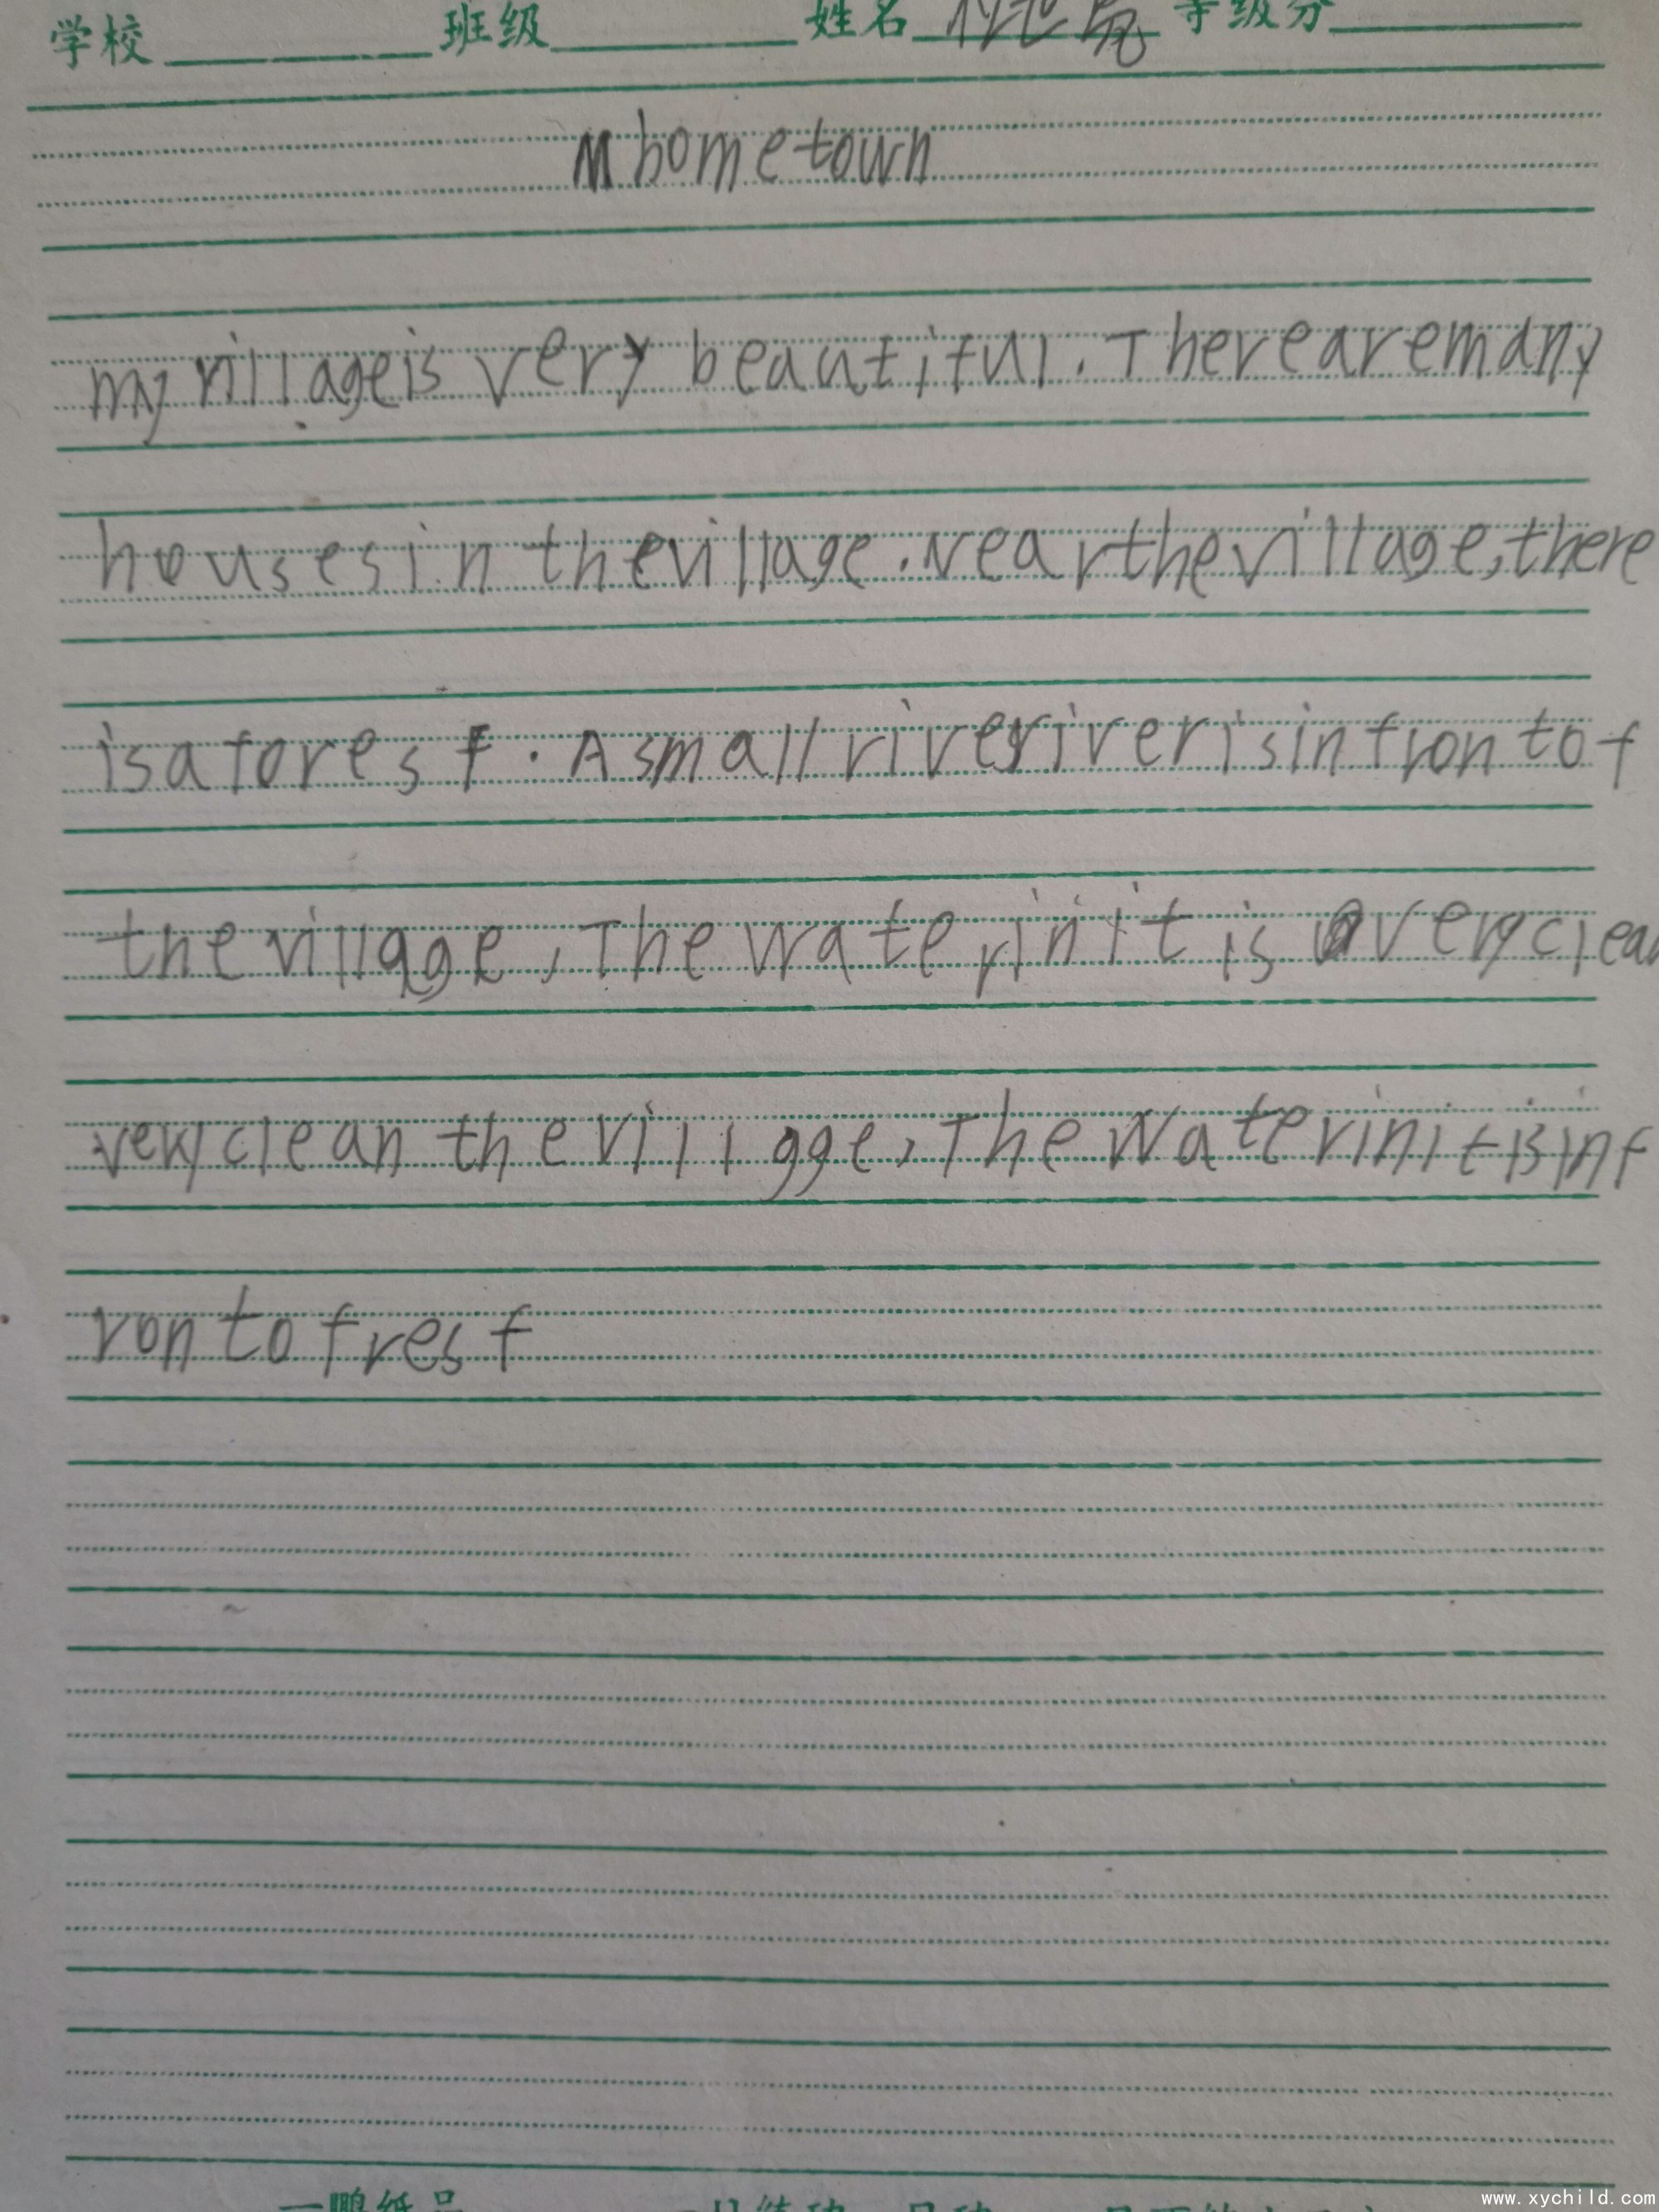 学校 班级 姓名 等级分
M hometown
my village is very beautiful. There are many
houses in the village. Near the village, there
is a forest. A small river river is in front of
the village, The water in it is a very clean
very clean the villgge, The water in it is in f
ront of rest
www.xychild.com